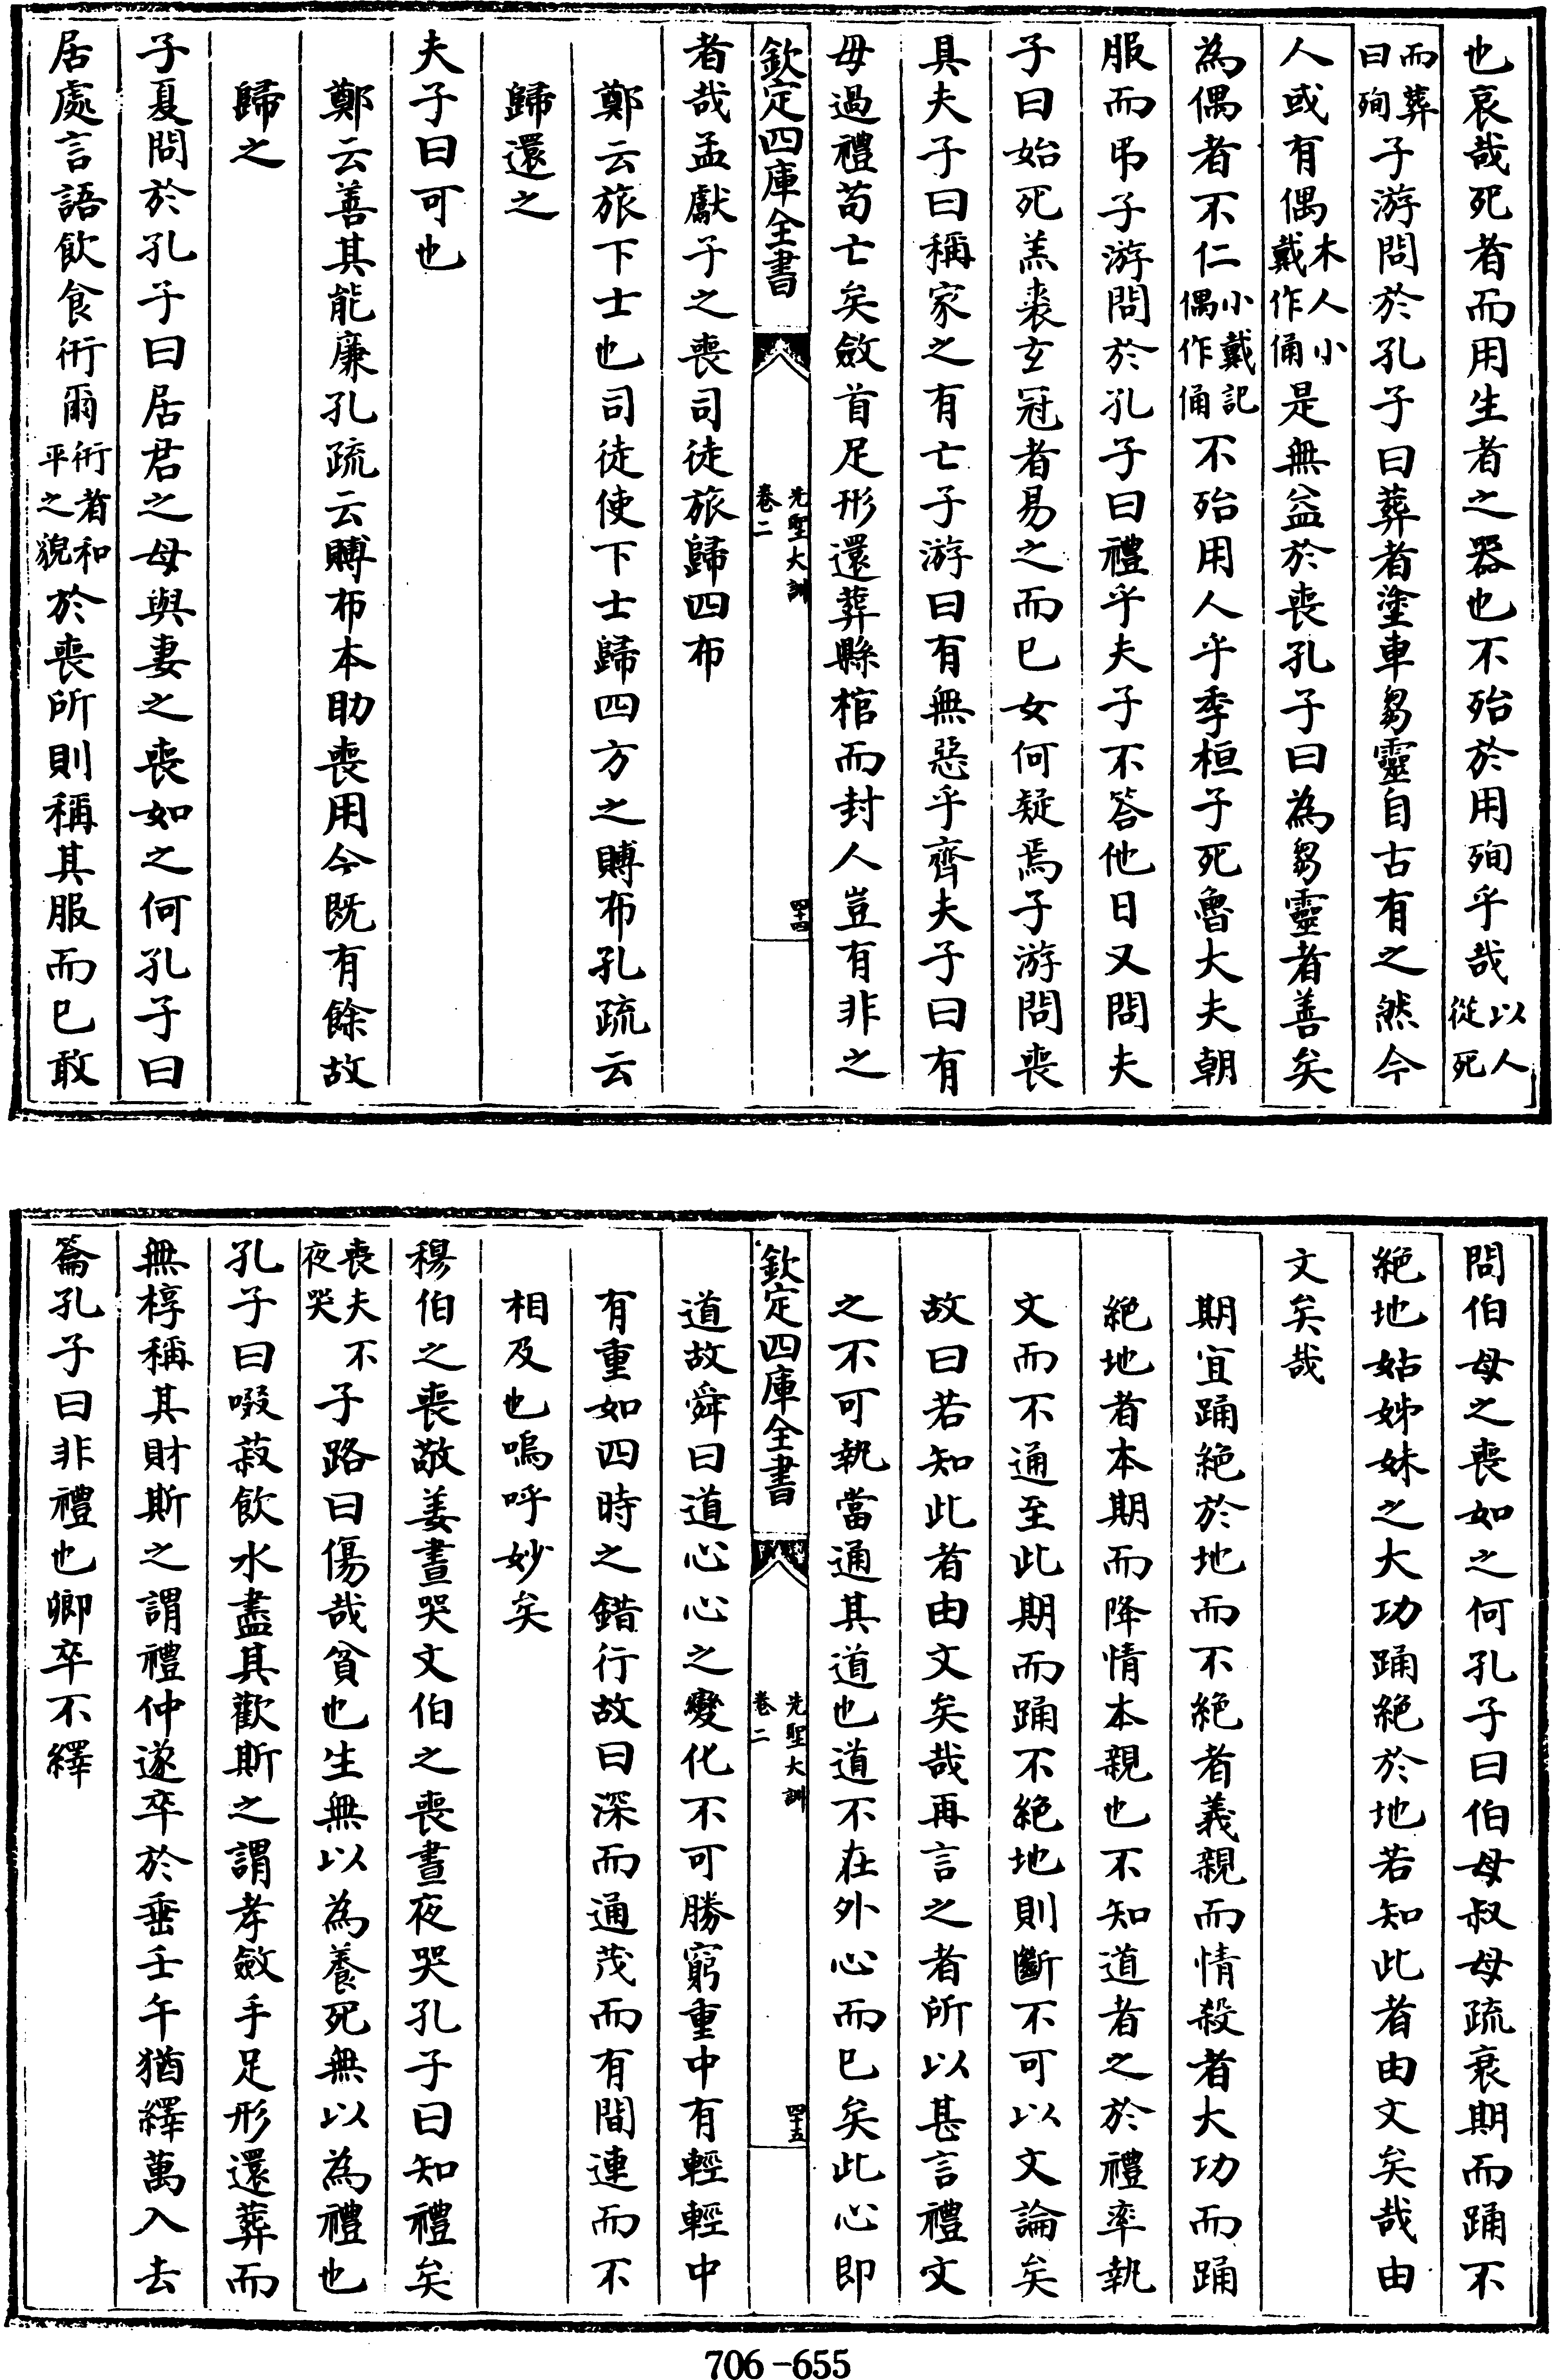 也哀哉死者而用生者之器也不殆於用殉乎哉以人從死
而葬曰殉子游問於孔子曰葬者塗車芻靈自古有之然今
人或有偶木人小戴作俑是無益於喪孔子曰為芻靈者善矣
為偶者不仁小戴記偶作俑不殆用人乎季桓子死魯大夫朝
服而弔子游問於孔子曰禮乎夫子不答他日又問夫
子曰始死羔裘玄冠者易之而已女何疑焉子游問喪
具夫子曰稱家之有亡子游曰有無惡乎齊夫子曰有
毋過禮苟亡矣斂首足形還葬縣棺而封人豈有非之
欽定四庫全書 先聖大訓 卷二 四十四
者哉孟獻子之喪司徒旅歸四布
鄭云旅下士也司徒使下士歸四方之賻布孔疏云
歸還之
夫子曰可也
鄭云善其能廉孔疏云賻布本助喪用今既有餘故
歸之
子夏問於孔子曰居君之母與妻之喪如之何孔子曰
居處言語飲食衎爾衎者和平之貌於喪所則稱其服而已敢
問伯母之喪如之何孔子曰伯母叔母疏衰期而踊不
絕地姑姊妹之大功踊絕於地若知此者由文矣哉由
文矣哉
期宜踊絕於地而不絕者義親而情殺者大功而踊
絕地者本期而降情本親也不知道者之於禮率執
文而不通至此期而踊不絕地則斷不可以文論矣
故曰若知此者由文矣哉再言之者所以甚言禮文
之不可執當通其道也道不在外心而已矣此心即
欽定四庫全書 先聖大訓 卷二 四十五
道故舜曰道心心之變化不可勝窮重中有輕輕中
有重如四時之錯行故曰深而通茂而有間連而不
相及也嗚呼妙矣
穆伯之喪敬姜晝哭文伯之喪晝夜哭孔子曰知禮矣
喪夫不夜哭子路曰傷哉貧也生無以為養死無以為禮也
孔子曰啜菽飲水盡其歡斯之謂孝斂手足形還葬而
無椁稱其財斯之謂禮仲遂卒於垂壬午猶繹萬入去
籥孔子曰非禮也卿卒不繹
706-655